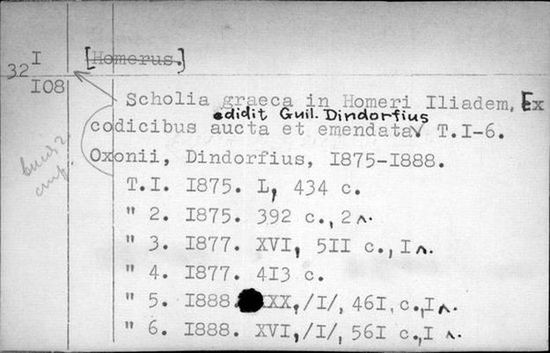 32 I [Homerus.]
I08
Scholia graeca in Homeri Iliadem, Ex
edidit Guil. Dindorfius
codicibus aucta et emendata T.I-6.
Oxonii, Dindorfius, I875-I888.
T.I. I875. L, 434 c.
" 2. I875. 392 c., 2 л.
" 3. I877. XVI, 5II c., I л.
" 4. I877. 4I3 c.
" 5. I888. XX, /I/, 46I, c., I л.
" 6. I888. XVI, /I/, 56I c., I л.